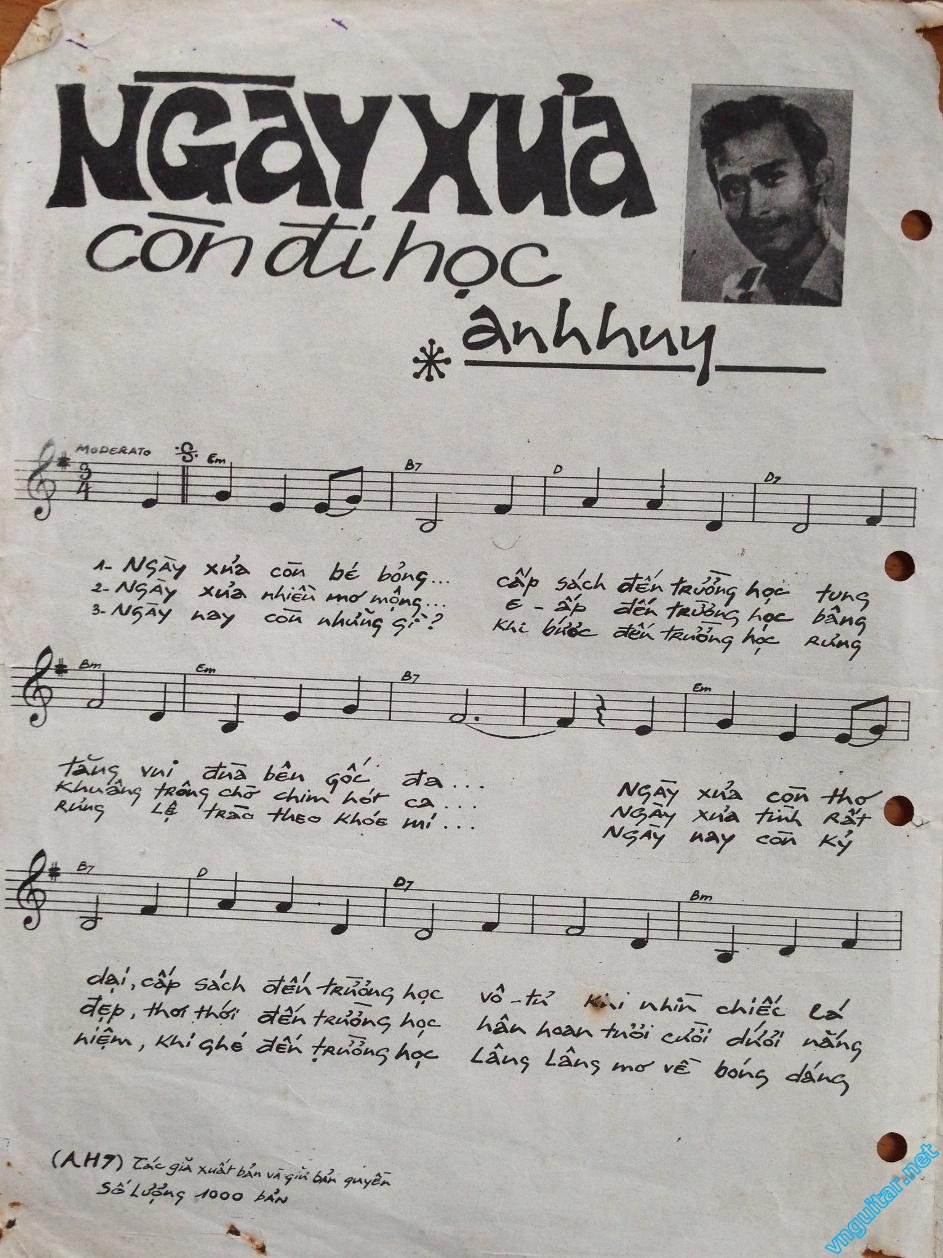 NGÀY XƯA
còn đi học
anh huy
MODERATO
3
4
Em B7 D D7
1- NGÀY xưa còn bé bỏng... cấp sách đến trường học tung
2- NGÀY xưa nhiều mơ mộng... E - ấp đến trường học bâng
3- NGÀY nay còn những gì? Khi bước đến trường học rưng
Bm Em B7 Em
tăng vui đùa bên gốc đa... NGÀY xưa còn thơ
khuâng trông chờ chim hót ca... NGÀY xưa tình rất
rưng lệ trào theo khóe mi... NGÀY nay còn kỷ
B7 D D7 Bm
dại, cấp sách đến trường học vô-tư khi nhìn chiếc lá
đẹp, thơ thới đến trường học hân hoan tươi cười dưới nắng
niệm, khi ghé đến trường học Lâng Lâng mơ về bóng dáng
(AH7) Tác giả xuất bản và giữ bản quyền
Số lượng 1000 bản
vnguitar.net